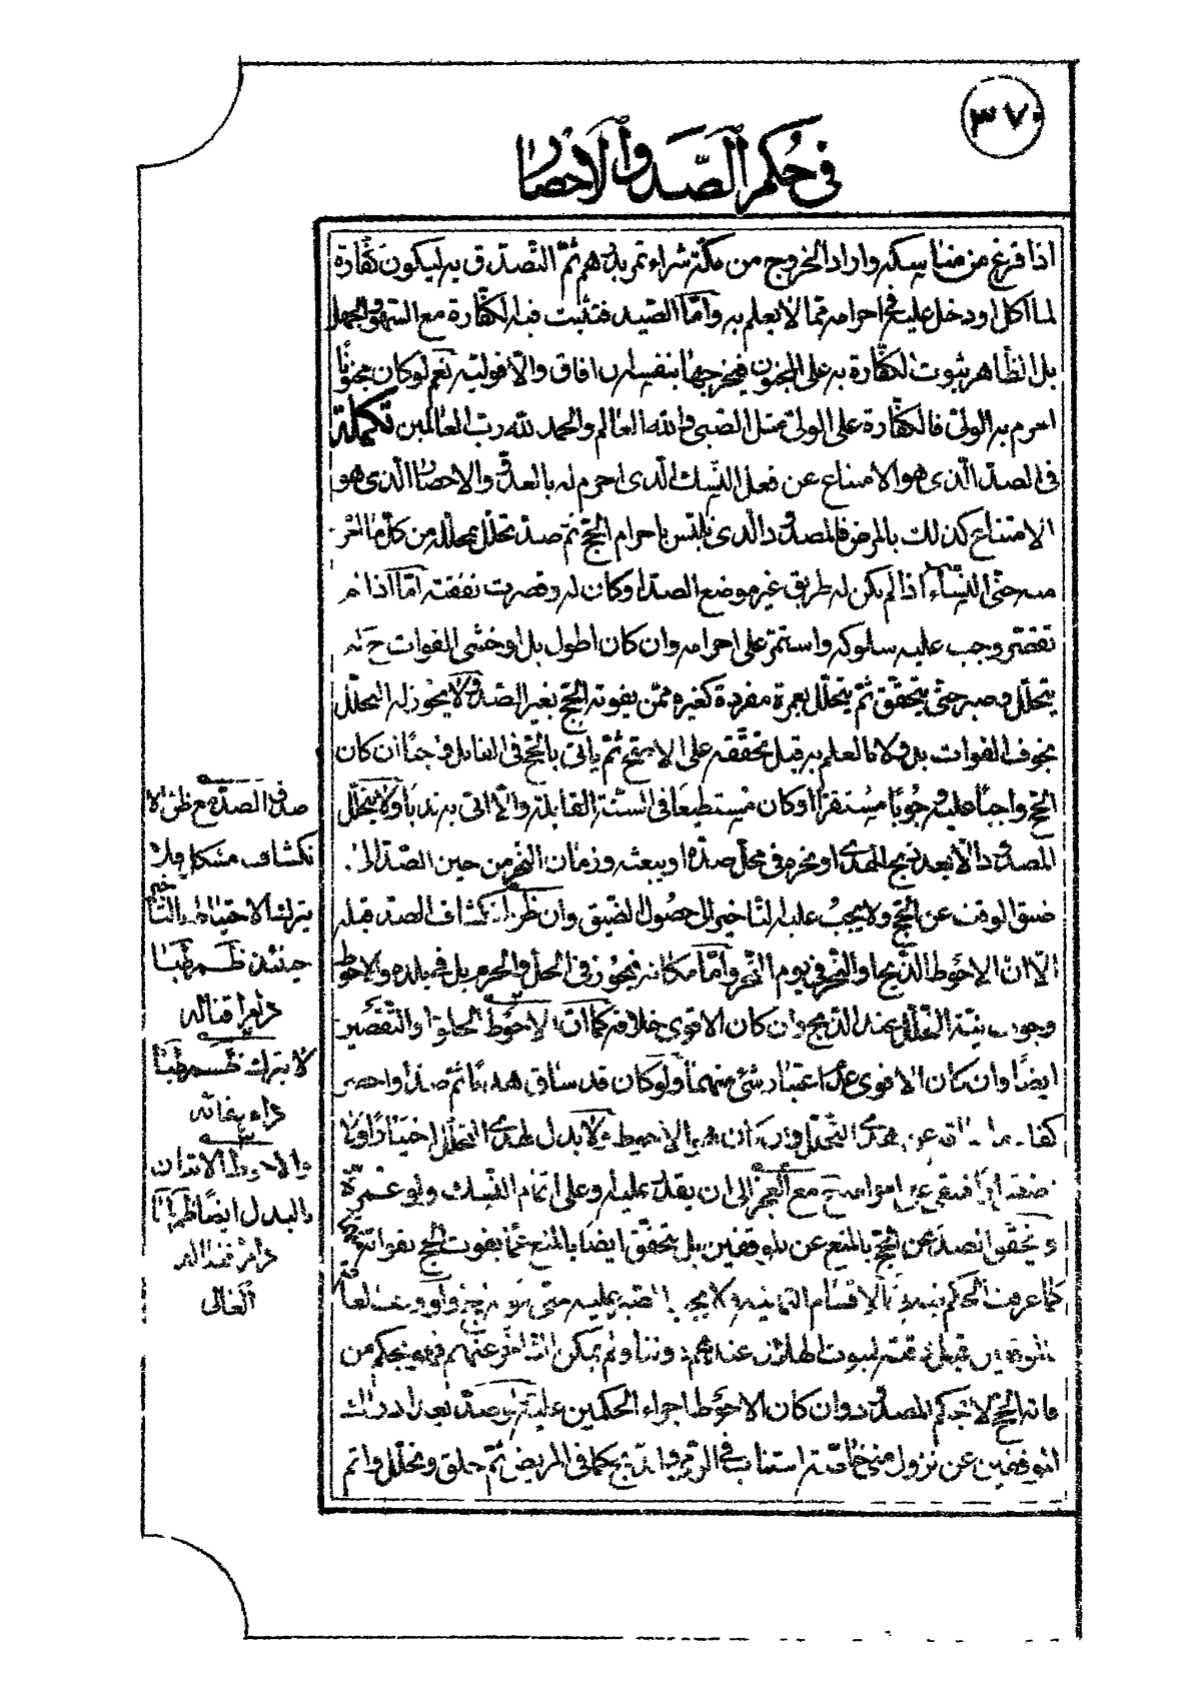 ٣٧٠
في حكم الصد والاحصار
اذا فرغ من مناسكه واراد الخروج من مكة شراء تمر بدرهم ثم التصدق به ليكون كفارة
لما اكل او دخل عليه في احرامه مما لا يعلم به واما الصيد فتثبت فيه الكفارة مع السهو والجهل
بل الظاهر ثبوت الكفارة به على المجنون فيخرجها بنفسه ان افاق والا فوليه نعم لو كان مجنونا
احرم به الولى فالكفارة على الولى مثل الصبى والله العالم والحمد لله رب العالمين تكملة
في الصد الذى هو الامتناع عن فعل النسك الذى احرم له بالعدو والاحصار الذى هو
الامتناع كذلك بالمرض فالمصدود الذى تلبس باحرام الحج ثم صد تحلل بمحلله من كل ما احرم
منه حتى النساء اذا لم يكن له طريق غير موضع الصد او كان له وقصرت نفقته اما اذا لم
تقصر وجب عليه سلوكه واستمر على احرامه وان كان اطول بل لو خشى الفوات ح لم
يتحلل وصبر حتى يتحقق ثم يتحلل بعمرة مفردة كغيره ممن يفوته الحج بغير الصد ولا يجوز له التحلل
بخوف الفوات بل ولا بالعلم به قبل تحققه على الاصح ثم ياتى بالحج فى القابل وجوبا ان كان
الحج واجبا عليه وجوبا مستقرا او كان مستطيعا فى السنة القابلة والا اتى به ندبا ولا يتحلل
المصدود الا بعد ذبح الهدى او نحره فى محل صده او يبعثه وزمان النحر من حين الصد الى
ضيق الوقت عن الحج ولا يجب عليه التاخير الى حصول الضيق وان ظن انكشاف الصد قبله
الا ان الاحوط الذبح او النحر فى يوم النحر واما مكانه فيجوز فى الحل والحرم بل في بلده والاحوط
وجوب نية التحلل عند الذبح وان كان الاقوى خلافه كما ان الاحوط الحلق او التقصير
ايضا وان كان الاقوى عدم اعتبار شئ منهما ولو كان قد ساق هديا ثم صد او احصر
كفاه ما ساقه عن هدى التحلل وان كان الاحوط ولا بدل لهدى التحلل اختيارا ولا
فيبقى على احرامه ح مع العجز الى ان يقدر عليه وعلى اتمام النسك ولو عمرة
ويتحقق الصد عن الحج بالمنع عن الموقفين بل يتحقق ايضا بالمنع عما يفوت الحج بفواته
كما عرفت الحكم فيه بالاقسام الثمانية
الموقفين قبل
فاته الحج لا بحكم المصدود وان كان الاحوط اجراء الحكمين عليه ولو صد بعد ادراك
الموقفين عن نزول منى خاصة استناب في الرمى والذبح كما فى المريض ثم حلق وتحلل واتم
صدق الصد مع ظن الا
نكشاف مشكل فلا
يترك الاحتياط بالتاخير
حينئذ ظم طبا
دام اقباله
لا يترك ظم طبا
دام بقائه
والاحوط الاتيان
بالبدل ايضا
دام ظله
العالى